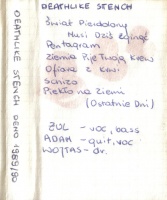 DEATHLIKE STENCH DEMO 1989/90
DEATHLIKE STENCH
Świat Pierdolony
Musi Dziś Zginąć
Pentagram
Ziemia Pije Twoją Krew
Ofiara z krwi
Schizo
Piekło na Ziemi
(Ostatnie Dni)
ZUL - VOC, bass
ADAM - guit, voc
WOJTAS - dr.